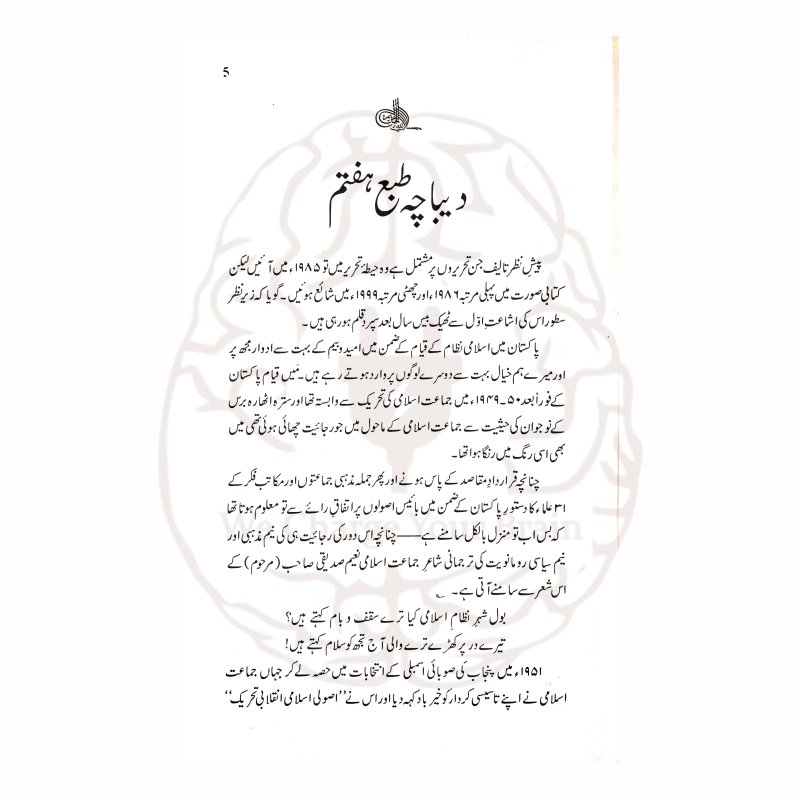 5
دیباچہ طبع ہفتم
پیشِ نظر تالیف جن تحریروں پر مشتمل ہے وہ حیطۂ تحریر میں تو ۱۹۸۵ء میں آئیں لیکن
کتابی صورت میں پہلی مرتبہ ۱۹۸۶ء اور چھٹی مرتبہ ۱۹۹۹ء میں شائع ہوئیں۔ گویا کہ زیرِ نظر
سطور اس کی اشاعتِ اوّل سے ٹھیک بیس سال بعد سپردِ قلم ہو رہی ہیں۔
پاکستان میں اسلامی نظام کے قیام کے ضمن میں امید و بیم کے بہت سے ادوار مجھ پر
اور میرے ہم خیال بہت سے دوسرے لوگوں پر وارد ہوتے رہے ہیں۔ مَیں قیامِ پاکستان
کے فوراً بعد ۵۰۔۱۹۴۹ء میں جماعت اسلامی کی تحریک سے وابستہ تھا اور سترہ اٹھارہ برس
کے نوجوان کی حیثیت سے جماعت اسلامی کے ماحول میں جو رجائیت چھائی ہوئی تھی میں
بھی اسی رنگ میں رنگا ہوا تھا۔
چنانچہ قراردادِ مقاصد کے پاس ہونے اور پھر جملہ مذہبی جماعتوں اور مکاتب فکر کے
۳۱ علماء کا دستورِ پاکستان کے ضمن میں بائیس اصولوں پر اتفاقِ رائے سے تو معلوم ہوتا تھا
We Charge Your Brain
کہ بس اب تو منزل بالکل سامنے ہے —— چنانچہ اس دور کی رجائیت ہی کی نیم مذہبی اور
نیم سیاسی رومانویت کی ترجمانی شاعرِ جماعت اسلامی نعیم صدیقی صاحب (مرحوم) کے
اس شعر سے سامنے آتی ہے۔ ؂
بول شہرِ نظامِ اسلامی کیا ترے سقف و بام کہتے ہیں؟
تیرے در پر کھڑے ترے والی آج تجھ کو سلام کہتے ہیں!
۱۹۵۱ء میں پنجاب کی صوبائی اسمبلی کے انتخابات میں حصہ لے کر جہاں جماعت
اسلامی نے اپنے تاسیسی کردار کو خیر باد کہہ دیا اور اس نے ’’اصولی اسلامی انقلابی تحریک‘‘